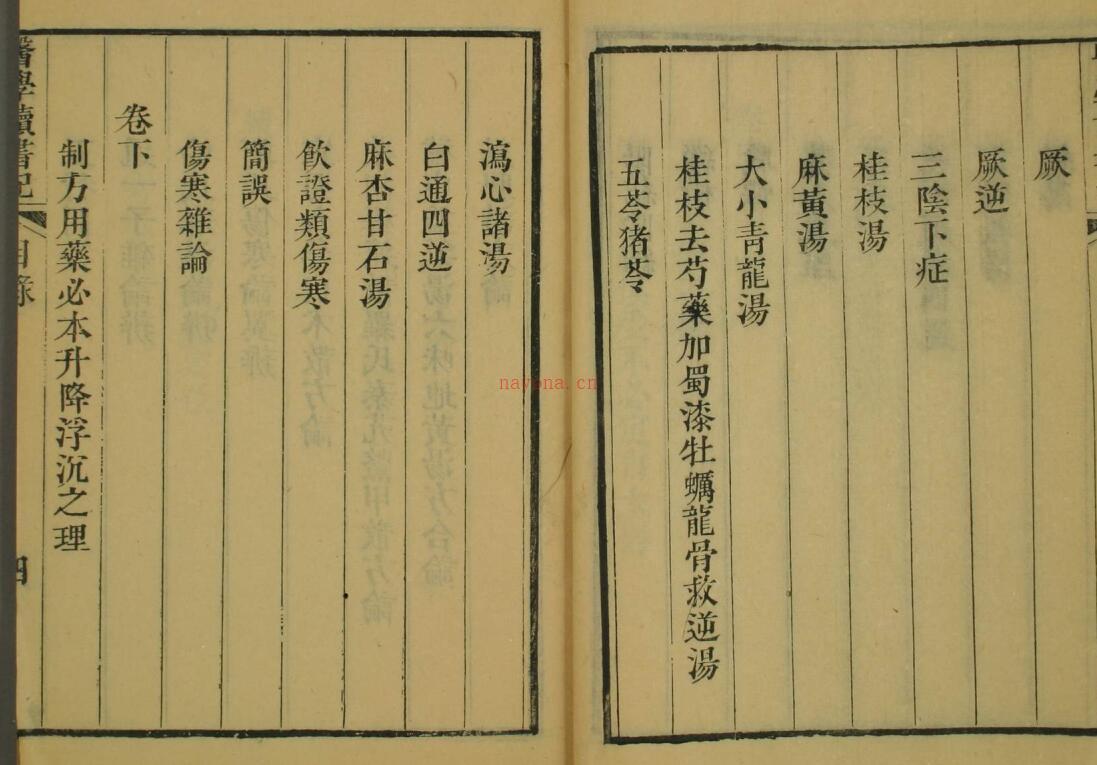 厥
厥逆
三陰下症
桂枝湯
麻黃湯
大小青龍湯
桂枝去芍藥加蜀漆牡蠣龍骨救逆湯
五苓猪苓
瀉心諸湯
白通四逆
麻杏甘石湯
飲證類傷寒
簡誤
傷寒雜論
卷下
制方用藥必本升降浮沉之理
醫學讀書記
目錄
四
nayona.cn